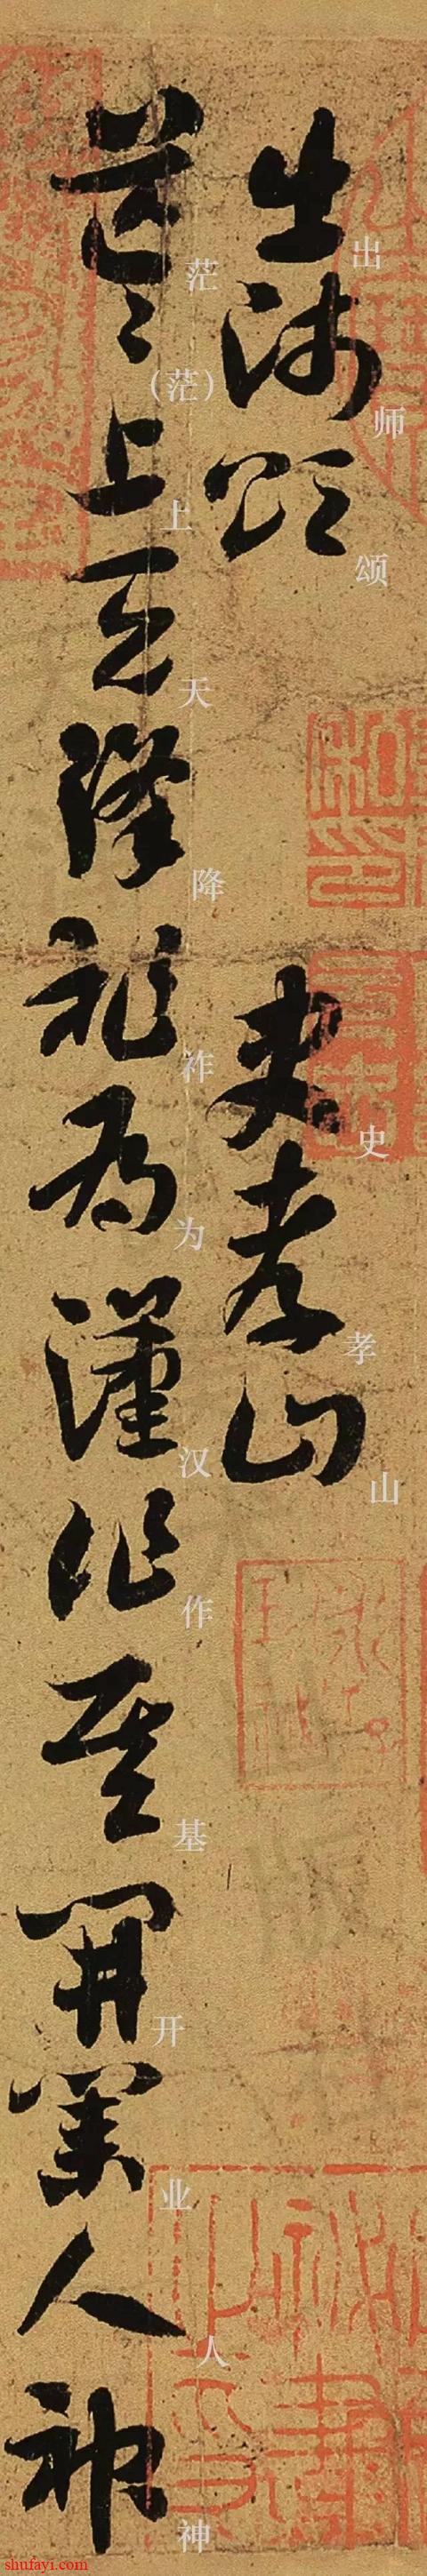 出师颂 史孝山
茫(茫)上天降祚为汉作基开业人神
shufayi.com